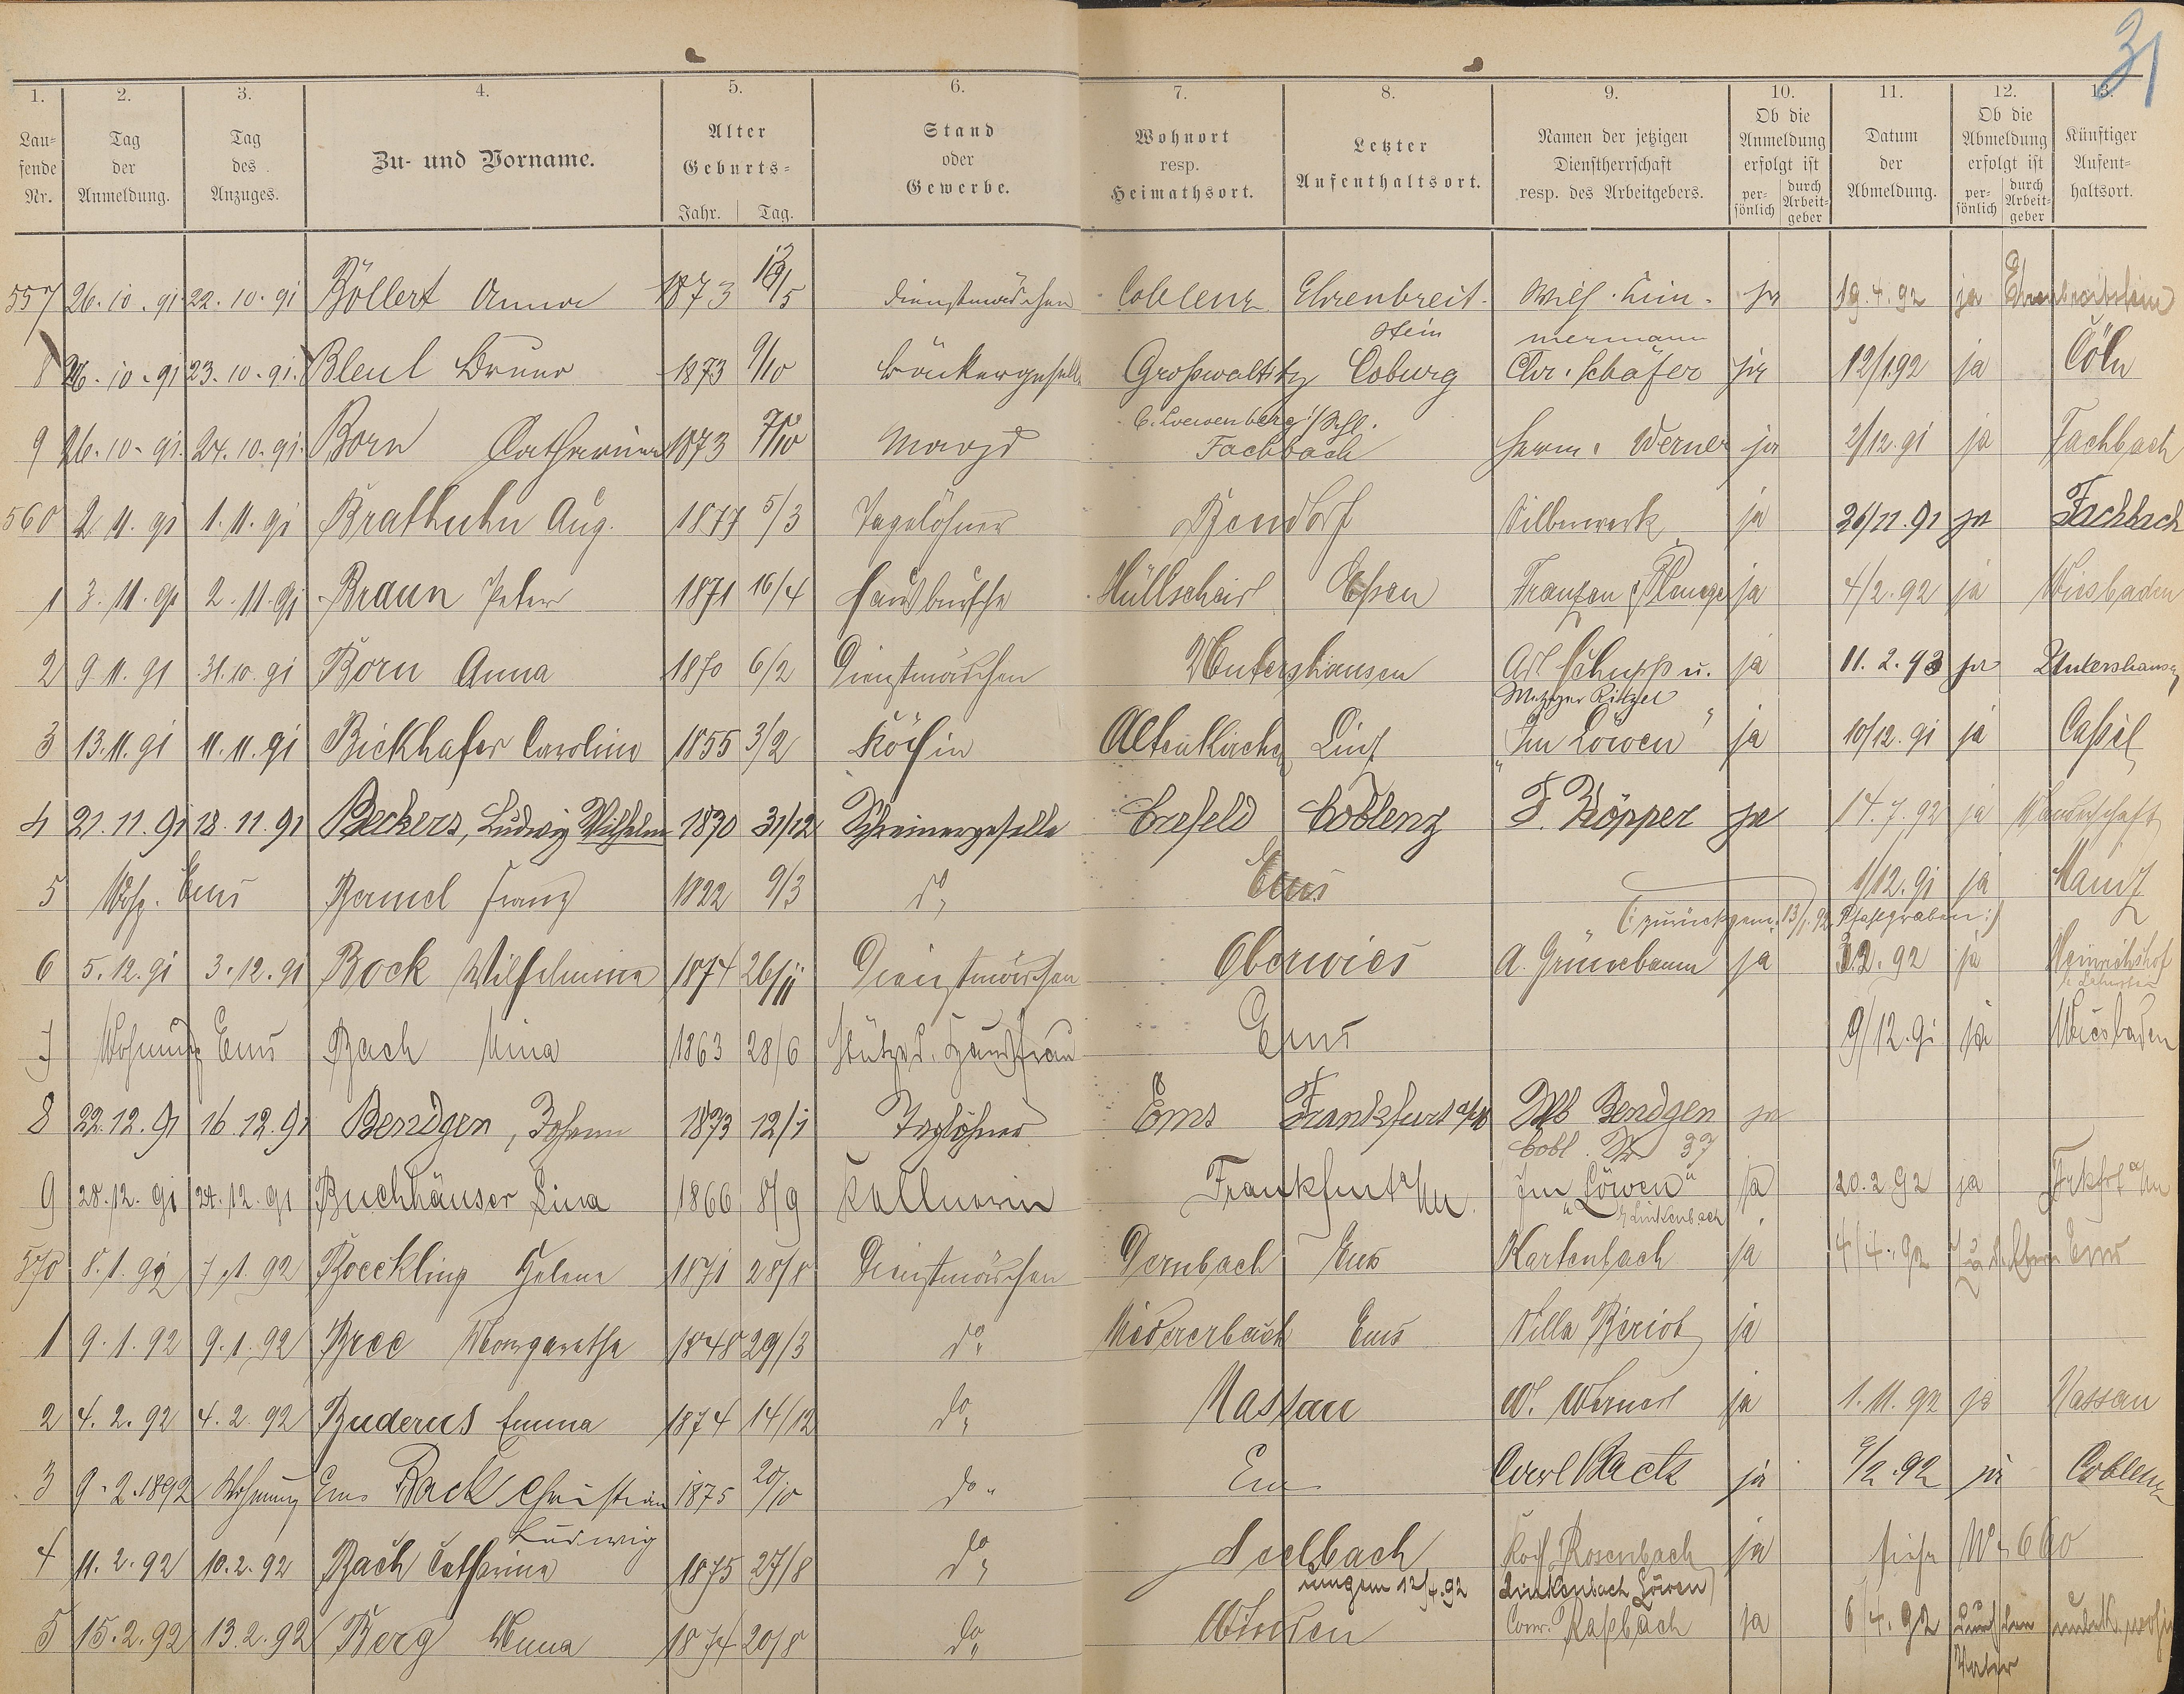 31
1. 2. 3. 4. 5. 6. 7. 8. 9. 10. 11. 12. 13.
Laufende Nr. Tag der Anmeldung. Tag des Anzuges. Zu- und Vorname. Alter Geburts- Jahr. Tag. Stand oder Gewerbe. Wohnort resp. Heimathsort. Letzter Aufenthaltsort. Namen der jetzigen Dienstherrschaft resp. des Arbeitgebers. Ob die Anmeldung erfolgt ist persönlich durch Arbeitgeber Datum der Abmeldung. Ob die Abmeldung erfolgt ist persönlich durch Arbeitgeber Künftiger Aufenthaltsort.
557 26.10.91 22.10.91 Böllert Anna 1873 Dienstmädchen Coblenz Ehrenbreit- Wilh. Zim- ja 19.4.92 ja Ehrenbreitstein
stein mermann
8 26.10.91 23.10.91. Bleul Bruno 1873 9/10 Bäckergeselle Großwaltitz Coburg Chr. Schäfer ja 12/1 92 ja Cöln
b. Loewenberg i/Schl.
9 26.10.91. 24.10.91. Born Catharina 1873 Magd Fachbach Herm. Werner ja 2/12.91 ja Fachbach
560 2.11.91 1.11.91 Brathuhn Aug. 1877 5/3 Tagelöhner Bendorf Silberwerk ja 26/11.91 ja Fachbach
1 3.11.91 2.11.91 Braun Peter 1871 16/4 Hausbursche Hüllscheid Essen ja 4/2.92 ja Wiesbaden
2 9.11.91 31.10.91 Born Anna 1870 6/2 Dienstmädchen Untershausen Ad. Schupp u. ja 11.2.93 ja Untershausen
Metzger Ritzel
3 13.11.91 11.11.91 Bickhafer Caroline 1855 3/2 Köchin Altenkirchen Linz "Im Löwen" ja 10/12.91 ja Cassel
4 21.11.91 18.11.91 Beckers, Ludwig Wilhelm 1870 31/12 Schreinergeselle Crefeld Coblenz F. Köpper ja 14.7.92 ja Wanderschaft
5 Wohg. Ems Franz 1822 9/3 do Ems 1/12.91 ja Mainz
(: zurückgem. 13/1.92. Pfahlgraben :)
6 5.12.91 3.12.91 Bock Wilhelmine 1874 26/11 Dienstmädchen Oberwies A. Grünebaum ja 92 ja
7 Wohnung Ems Bach Mina 1863 28/6 Stütze d. Hausfrau Ems 9/12.91 ja Wiesbaden
8 22.12.91 16.12.91 Bendgen, Johann 1873 12/1 Taglöhner Ems Frankfurt a/M Wb Bendgen ja
Cobl. Str 37
9 28.12.91 24.12.91 Buchhäuser Lina 1866 8/9 Kellnerin Frankfurt a/M. "Im Löwen" ja 20.2 92 ja Frkfrt a/M
b/ Linkenbach
570 8.1.92 7.1.92 Boeckling Helene 1871 28/8 Dienstmädchen Dernbach Ems Kartenbach ja 4/4.92 Ems
1 9.1.92 9.1.92 Bree Margarethe 1848 29/3 do. Niedererbach Ems Villa Beriot ja
2 4.2.92 4.2.92 Buderus Emma 1874 14/12 do Nassau W. Werner ja 1.11.92 ja Nassau
3 9.2.1892 Wohnung Ems Back Christian 1875 20/10 do. Ems Carl Back ja 9/2.92 ja Coblenz
Ludwig
4 11.2.92 10.2.92 Bach Catharina 1875 27/8 do Seelbach Koch Rosenbach ja siehe No 660
umgem 12/4.92 Linkenbach Löwen)
5 15.2.92 13.2.92 Berg Anna 1874 20/8 do Winden Conr. Raßbach ja 6/4.92 durch den unbek. wohin
Vater